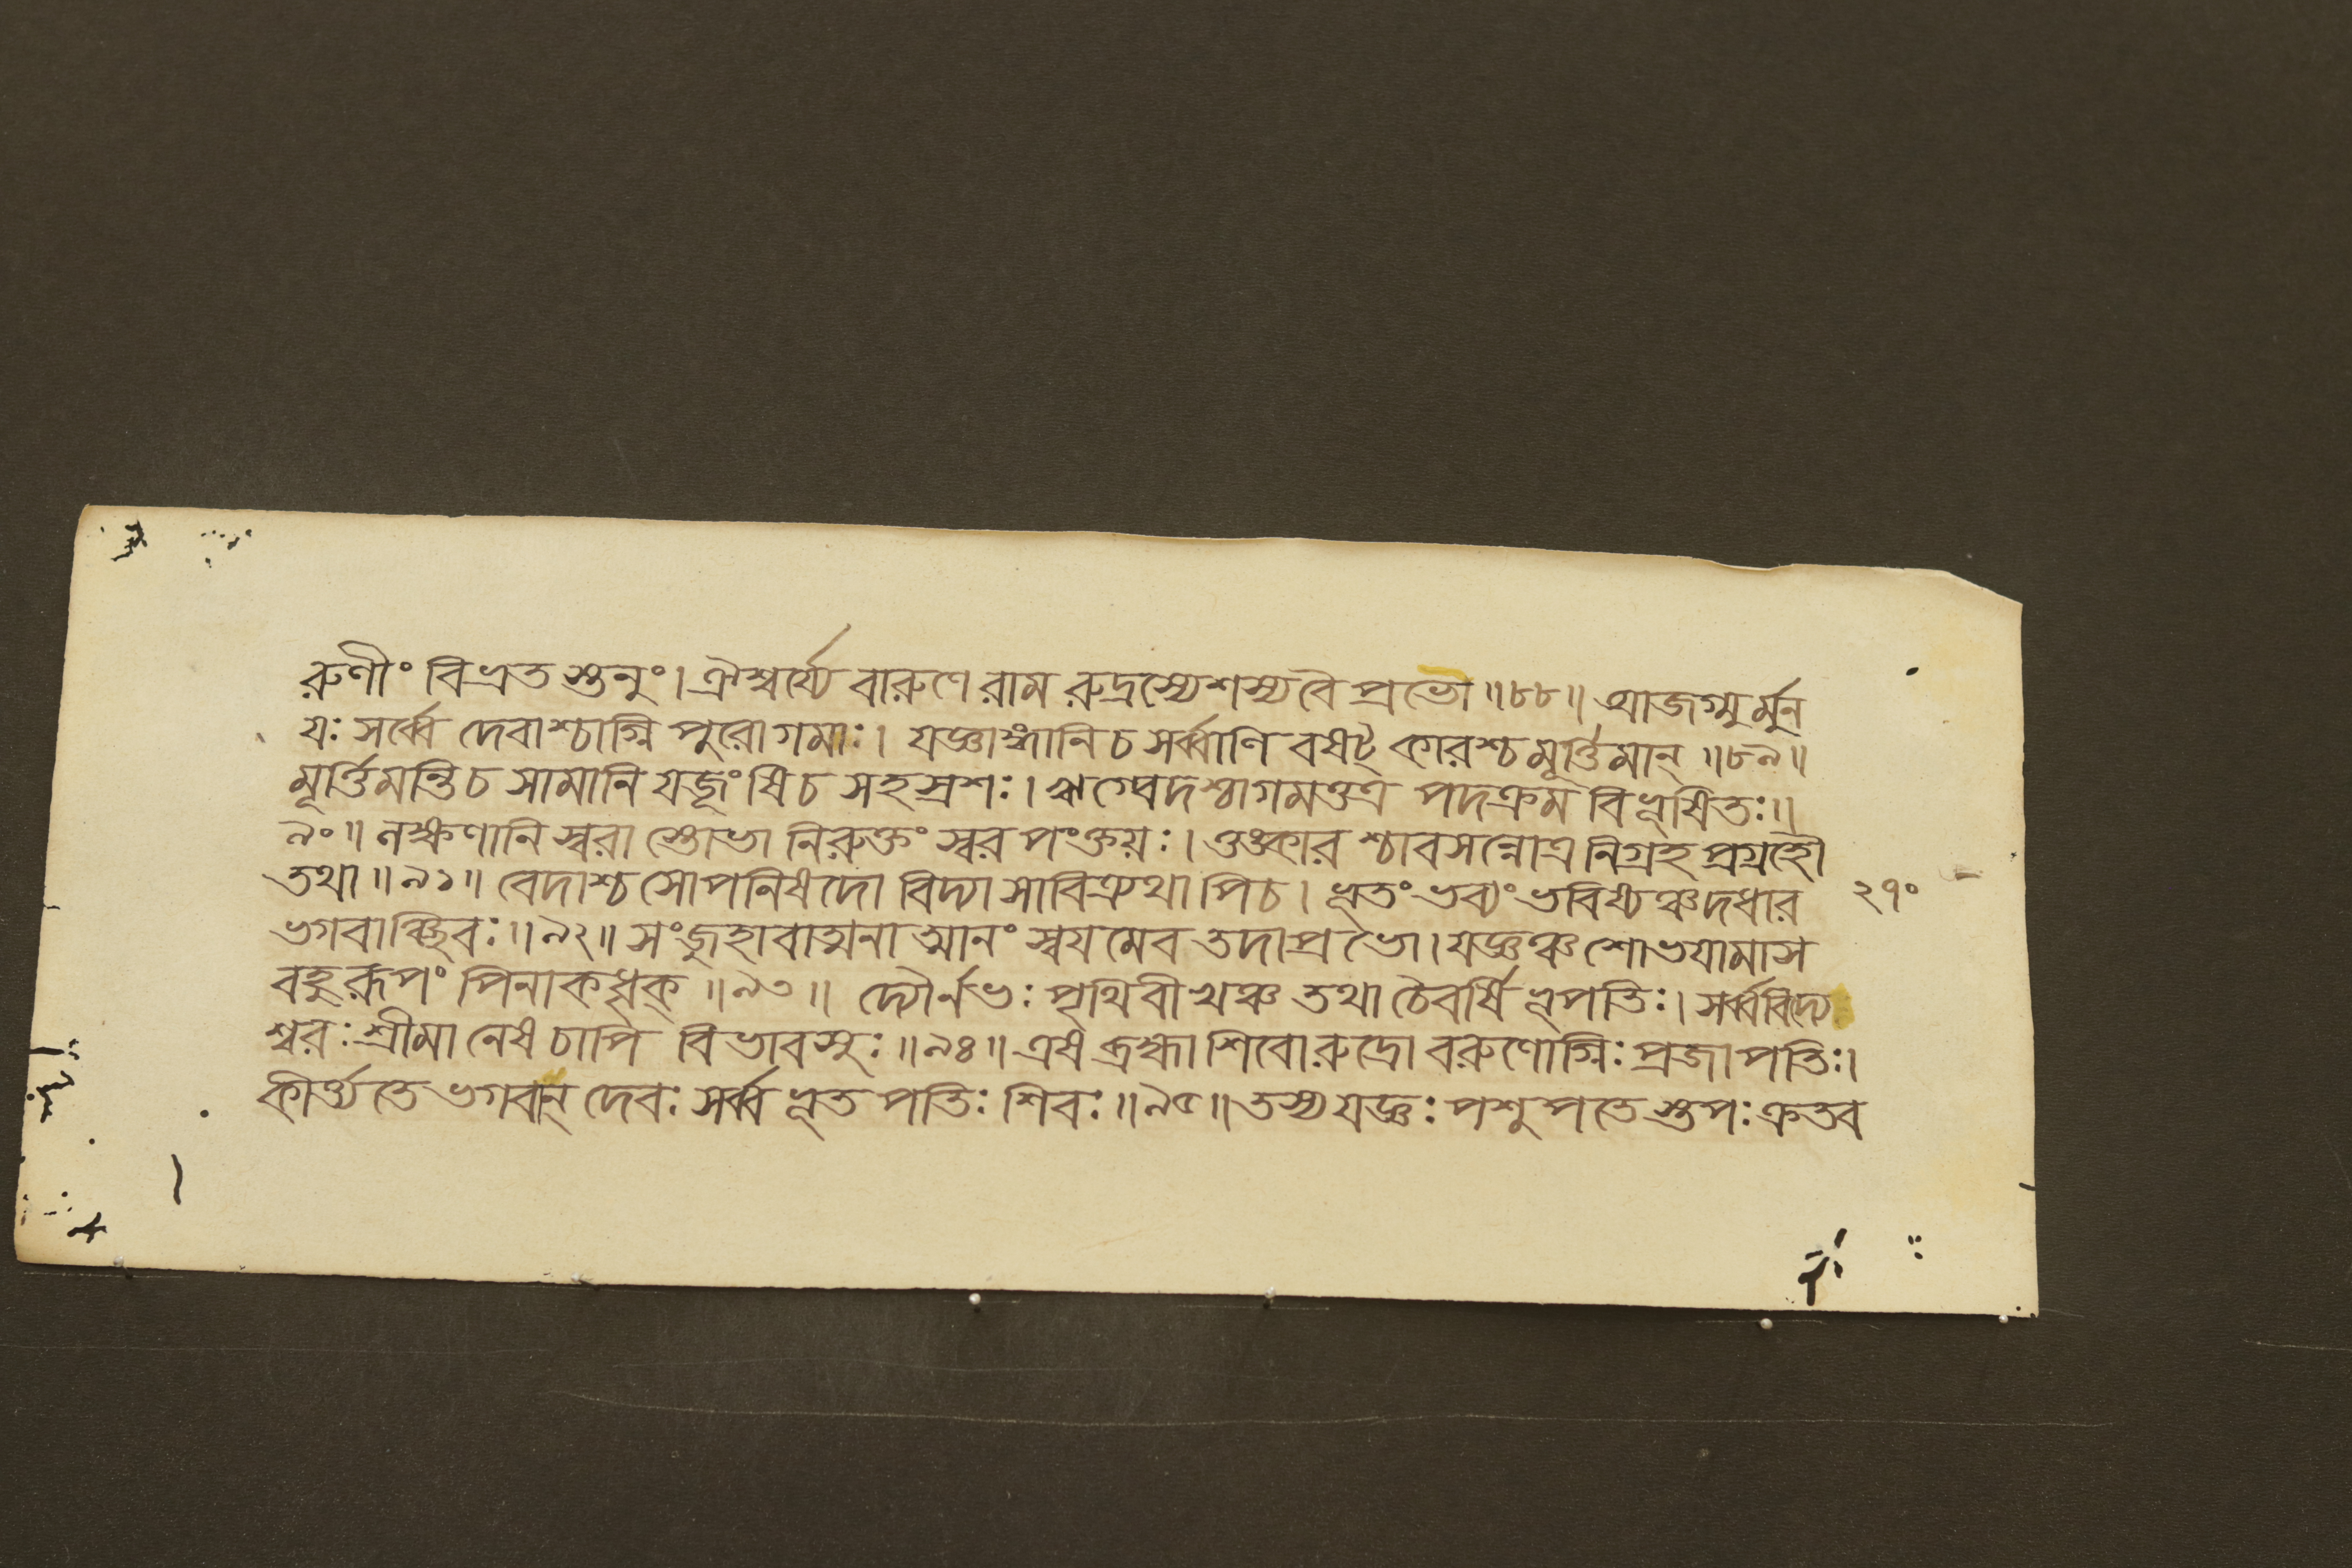 রুণীং বিভ্রত স্তনুং। ঐশ্বর্য্যে বারুণে রাম রুদ্রস্যেশস্য বৈ প্রভো ॥৮৮॥ আজগ্মু র্মুন
যঃ সর্ব্বে দেবাশ্চাগ্নি পুরোগমাঃ। যজ্ঞাঙ্গানি চ সর্ব্বাণি বষট্ কারশ্চ মূর্ত্তিমান্ ॥৮৯॥
মূর্ত্তিমন্তি চ সামানি যজূংষি চ সহস্রশঃ। ঋগ্বেদশ্চাগমত্তত্র পদক্রম বিভূষিতঃ॥
৯০॥ লক্ষণানি স্বরা স্তোভা নিরুক্তং স্বর পংক্তয়ঃ। ওঙ্কার শ্চাবসন্নেত্র নিগ্রহ প্রগ্রহৌ
তথা ॥৯১॥ বেদাশ্চ সোপনিষদো বিদ্যা সাবিত্র্যথাপি চ। ভূতং ভব্যং ভবিষ্যঞ্চ দধার
২৭০
ভগবাঞ্ছিবঃ ॥৯২॥ সংজুহাবাত্মনাত্মানং স্বয়মেব তদা প্রভো। যজ্ঞঞ্চ শোভয়ামাস
বহুরূপং পিনাকধৃক্ ॥৯৩॥ দ্যৌর্নভঃ পৃথিবী খঞ্চ তথা চৈবর্ষি ভূপতিঃ। সর্ব্ববিদ্যে
শ্বরঃ শ্রীমানেষ চাপি বিভাবসুঃ ॥৯৪॥ এষ ব্রহ্মা শিবোরুদ্রো বরুণোগ্নিঃ প্রজাপতিঃ।
কীর্ত্ত্যতে ভগবান্ দেবঃ সর্ব্ব ভূত পতিঃ শিবঃ ॥৯৫॥ তস্য যজ্ঞঃ পশুপতে স্তপঃ ক্রতব